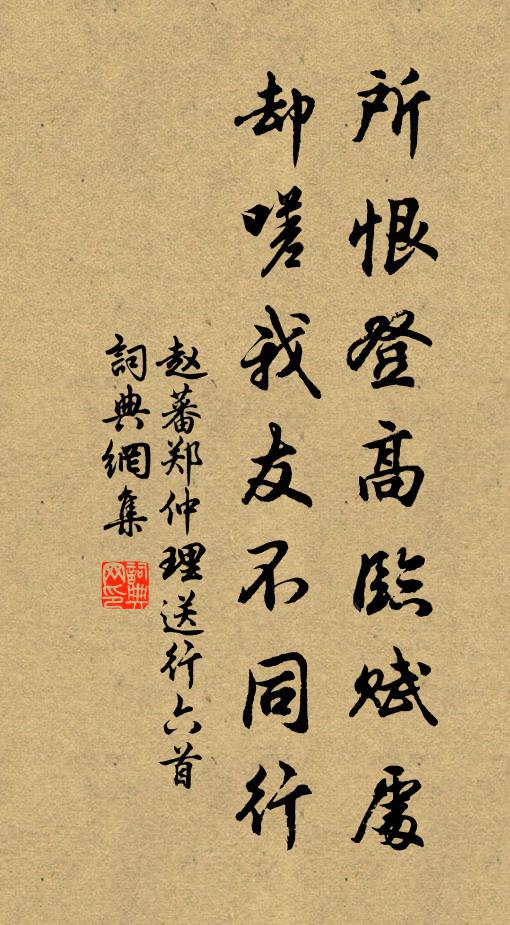 所恨登高臨赋處
却嗟我友不同行
赵蕃郑仲理送行六首
詞典網集
詞典网印